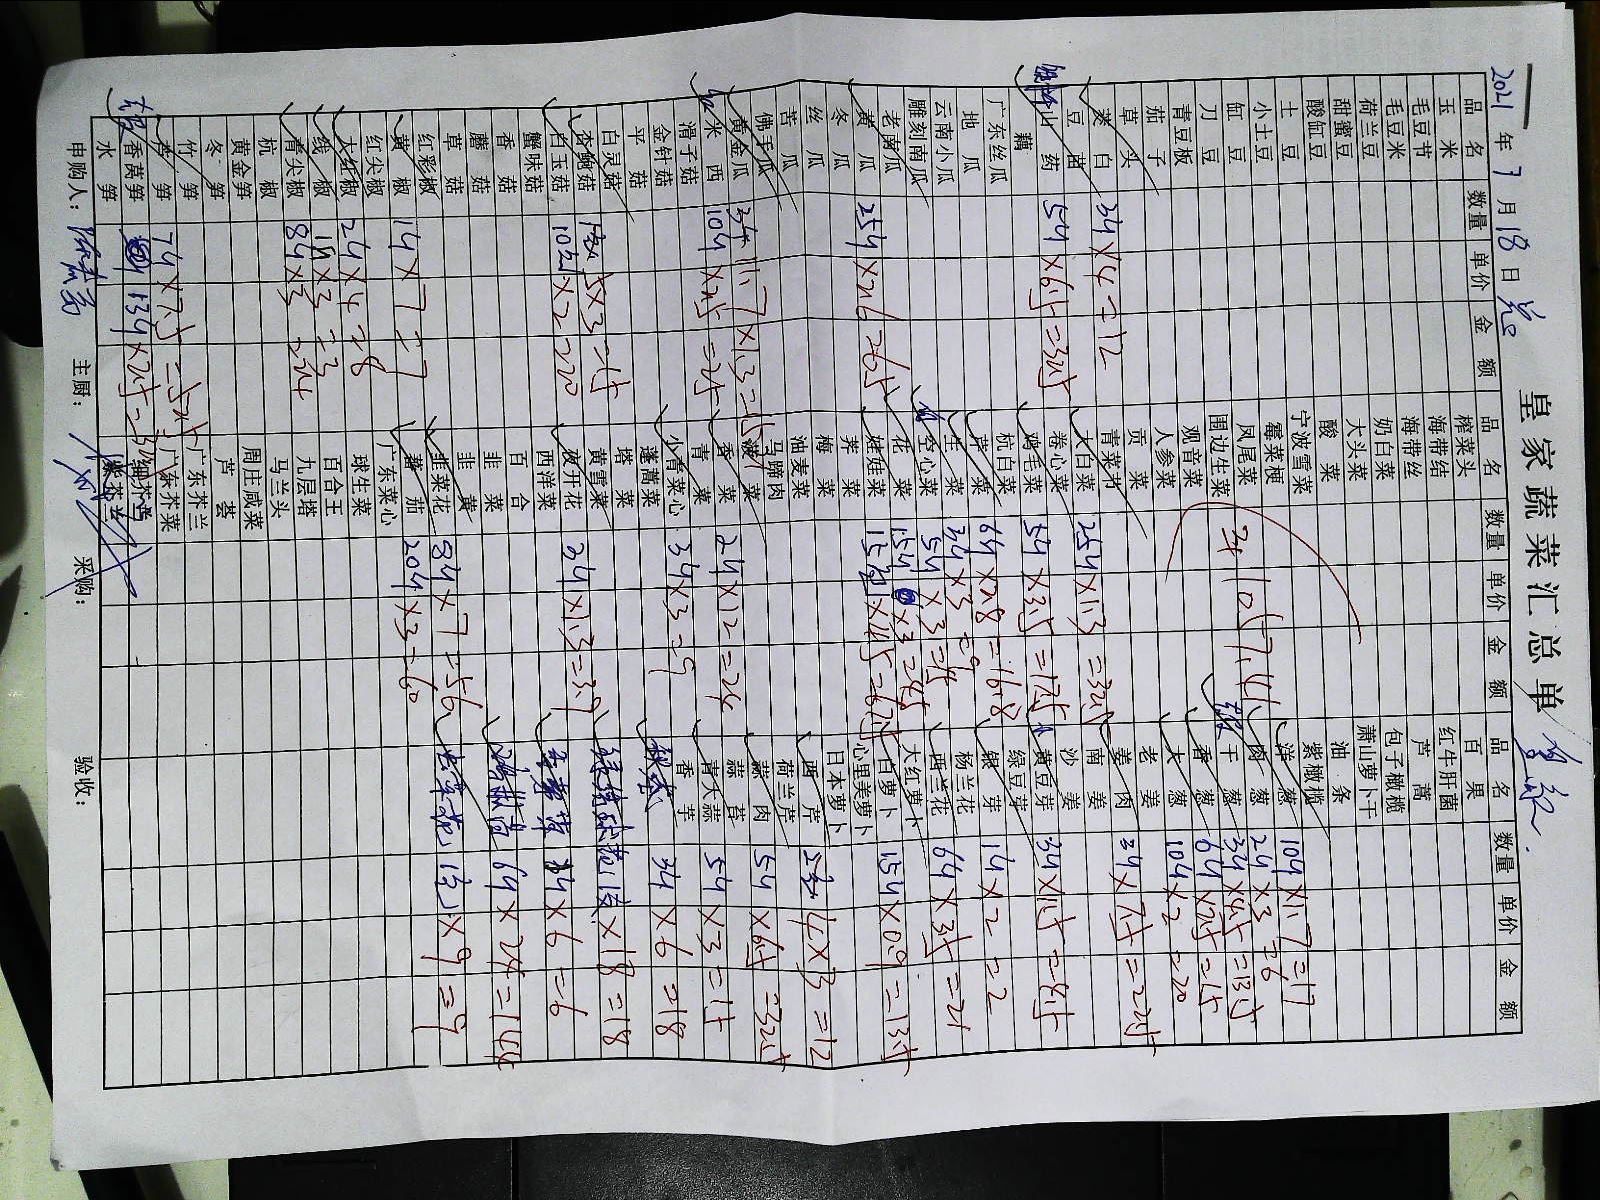 皇家蔬菜汇总单
2021年7月18日
品名 数量 单价 金额 品名 数量 单价 金额 品名 数量 单价 金额
玉米 榨菜头 百果
毛豆节 海带结 红牛肝菌
毛豆米 海带丝 芦蒿
荷兰豆 奶白菜 包子橄榄
甜蜜豆 大头菜 萧山萝卜干
酸缸豆 酸菜 油条
土豆 宁波雪菜 紫橄榄
小土豆 霉菜梗 洋葱 10斤×1.7=17
缸豆 凤尾菜 肉葱 2斤×3=6
刀豆 围边生菜 干葱 3斤×4.5=13.5
青豆板 观音菜 香葱 6斤×2.5=15
茄子 人参菜 大葱 10斤×2=20
草头 贡菜 老姜
茭白 3斤×4=12 青菜秧 姜肉 3斤×7.5=22.5
豆苗 大白菜 25斤×1.3=32.5 南姜
山药 5斤×6.5=32.5 卷心菜 沙姜
藕 鸡毛菜 5斤×3.5=17.5 黄豆芽 3斤
广东丝瓜 杭白菜 绿豆芽
地瓜 芹菜 6斤×2.8=16.8 银芽 1斤×2=2
云南小瓜 生菜 3斤×3=9 杨兰花
雕刻南瓜 空心菜 5斤×3=15 西兰花 6斤×3.5=21
老南瓜 花菜 15斤×3=45 大红萝卜
黄瓜 25斤×2.6=65 娃娃菜 15包×4.5=67.5 白萝卜 15斤×0.9=13.5
冬瓜 荠菜 心里美萝卜
丝瓜 梅菜 日本萝卜
苦瓜 油麦菜 西芹 ×3=12
佛手瓜 马蹄肉 荷兰芹
黄金瓜 菠菜 蒜肉 5斤×6.5=32.5
米西 10斤×2.5=25 香菜 2斤×12=24 蒜苔
滑子菇 青菜 青大蒜 5斤×3=15
金针菇 少青菜心 3斤×3=9 香芋
平菇 蓬蒿菜 秋葵 3斤×6=18
白灵菇 塔菜
杏鲍菇 5×3=15 黄雪菜 ×18=18
白玉菇 ×2=20 夜开花 3斤×1.3=3.9
蟹味菇 西洋菜 ×6=6
香菇 百合
蘑菇 韭菜 6斤×24=144
草菇 韭黄
红彩椒 韭菜花 8斤×7=56 虫草花 ×9=9
黄椒 1斤×7=7 番茄 20斤×3=60
红尖椒 广东菜心
大红椒 2斤×4=8 球生菜
线椒 1斤×3=3 百合王
青尖椒 8斤×3=24 九层塔
杭椒 马兰头
黄金笋 周庄咸菜
冬笋 芦荟
竹笋 广东芥兰
芦笋 7斤×7.5=52.5 广东芥菜
香莴笋 13斤×2.5= 细芥兰
水笋
申购人： 主厨： 采购： 验收：